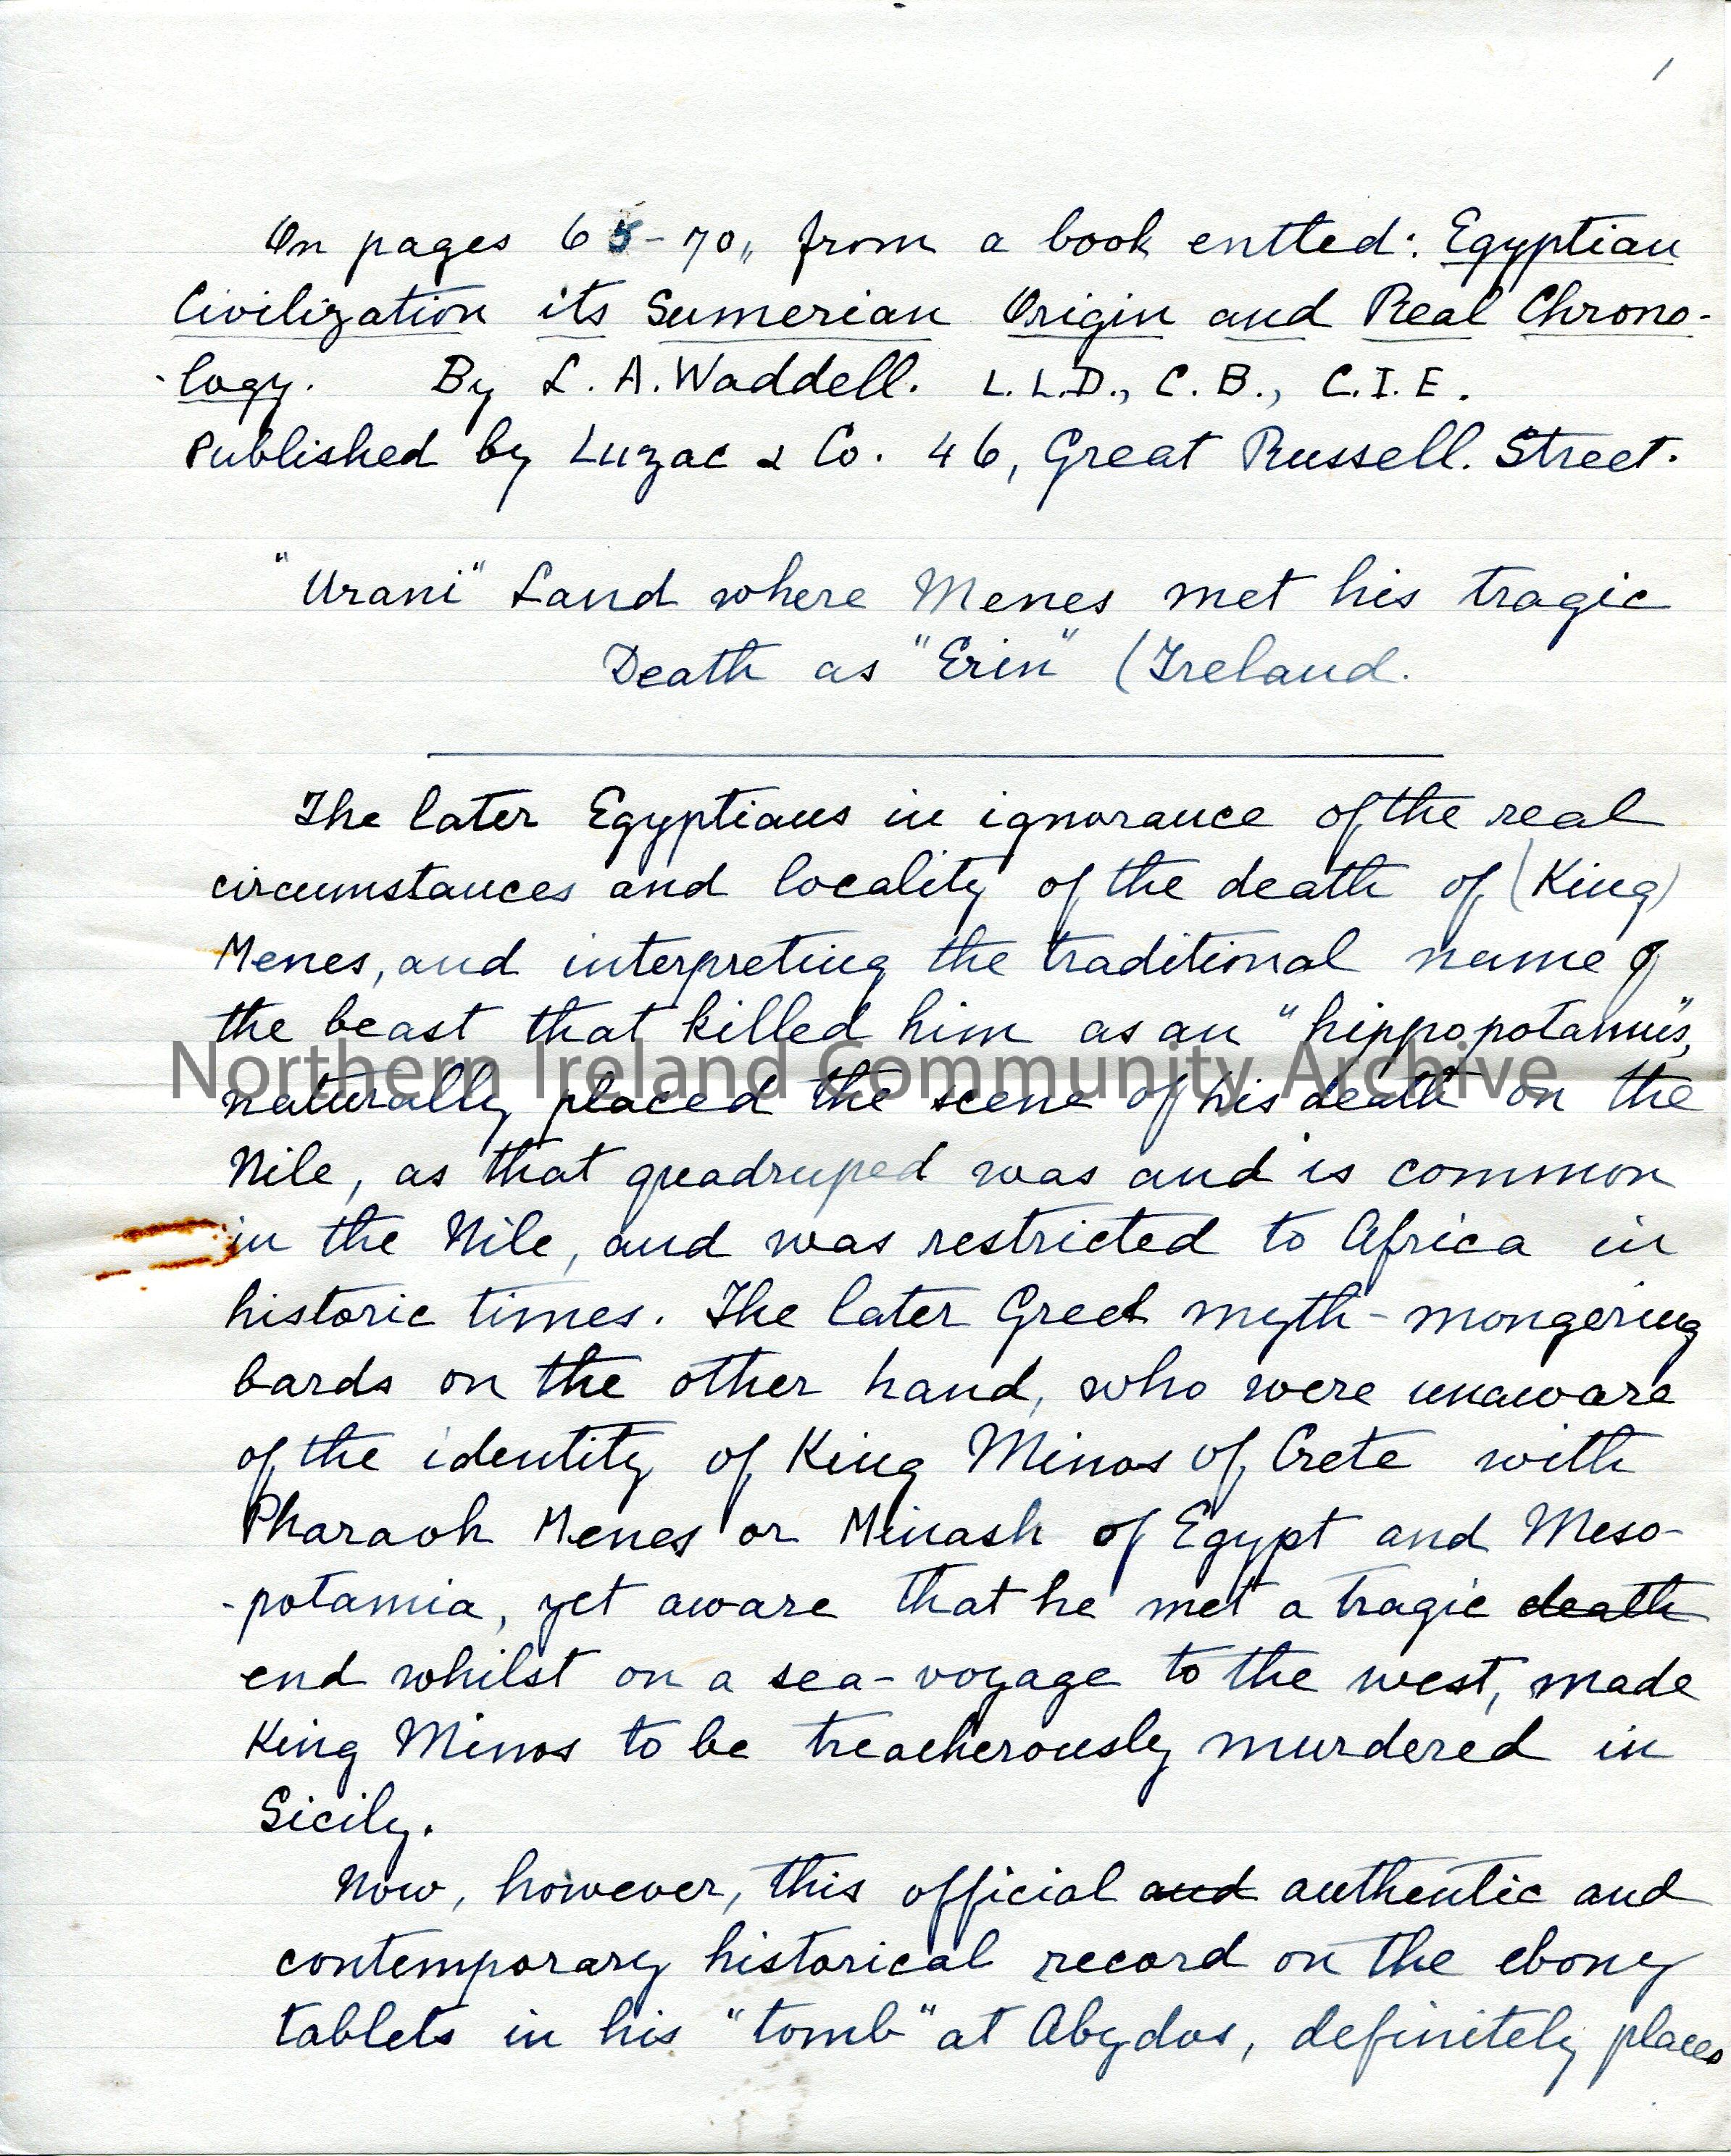 1
On pages 65-70,, from a book entled: Egyptian
Civilization its Sumerian Origin and Real Chrono-
-logy. By L. A. Waddell. L.L.D., C.B., C.I.E.
Published by Luzac & Co. 46, Great Russell. Street.
"Urani" Land where Menes met his tragic
Death as "Erin" (Ireland.
The later Egyptians in ignorance of the real
circumstances and locality of the death of (King)
Menes, and interpreting the traditional name of
the beast that killed him as an "hippopotamus",
Northern Ireland Community Archive
naturally placed the scene of his death on the
Nile, as that quadruped was and is common
in the Nile, and was restricted to Africa in
historic times. The later Greek myth-mongering
bards on the other hand, who were unaware
of the identity of King Minos of Crete with
Pharaoh Menes or Minash of Egypt and Meso-
-potamia, yet aware that he met a tragic death
end whilst on a sea-voyage to the west, made
King Minos to be treacherously murdered in
Sicily.
Now, however, this official and authentic and
contemporary historical record on the ebony
tablets in his "tomb" at Abydos, definitely places